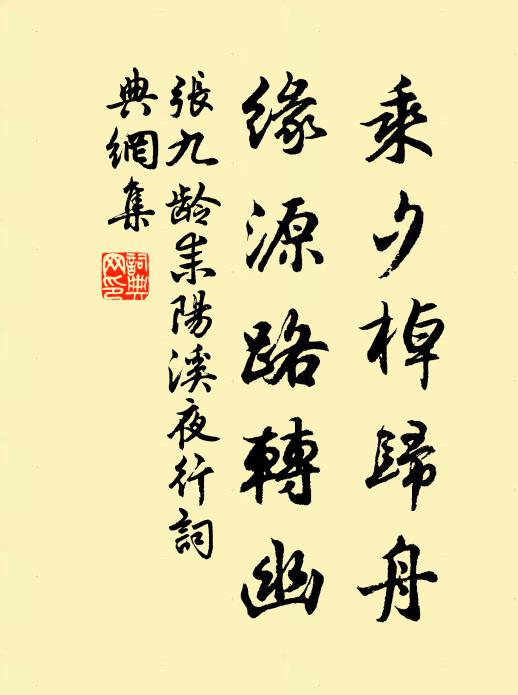 乘夕棹歸舟
緣源路轉幽
張九齡耒陽溪夜行詞
典網集
詞典网印